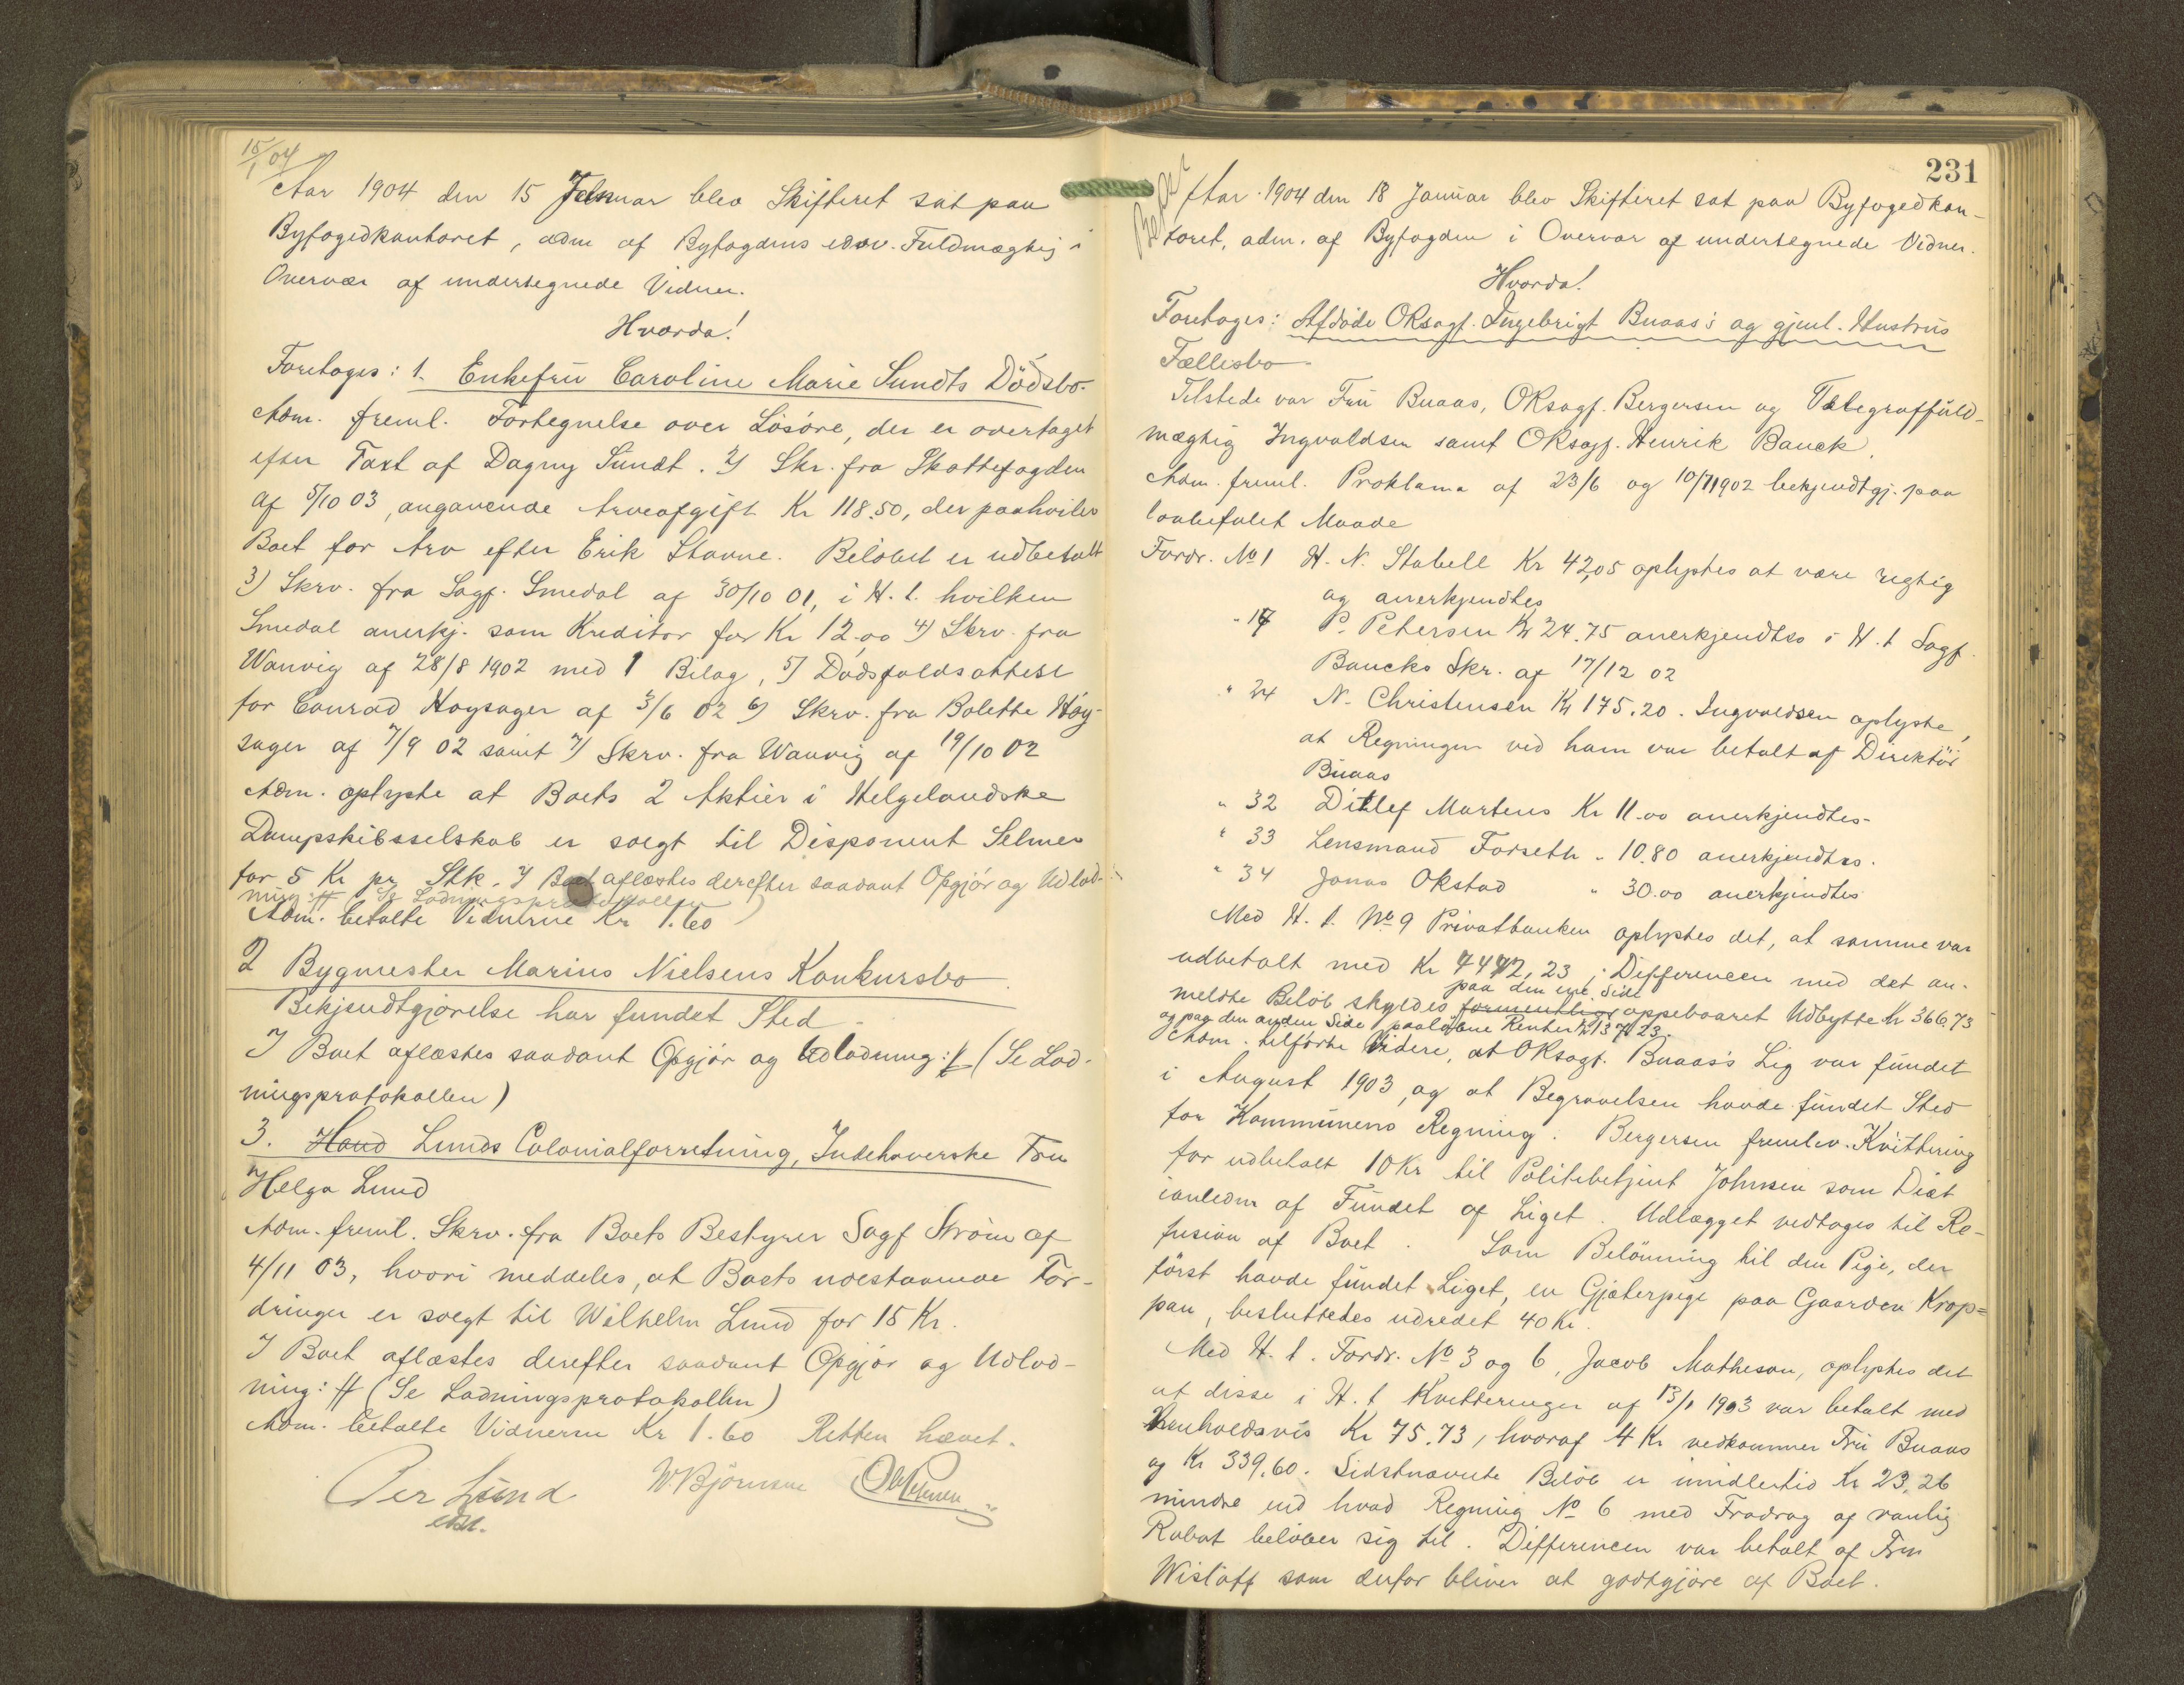 15/1 04
Aar 1904 den 15 Januar blev Skifteret sat paa
Byfogedkontoret, adm af Byfogdens edsv. Fuldmægtig i
Overvær af undertegnede Vidner.
Hvorda!
Foretoges: 1. Enkefru Caroline Marie Sundts Dödsbo.
Adm. freml. Fortegnelse over Lösöre, der er overtaget
efter Taxt af Dagny Sundt. 2) Skr. fra Skattefogden
af 5/10 03, angaaende Arveafgift Kr 118.50, der paahviler
Boet for Arv efter Erik Stavne. Belöbet er udbetalt
3) Skrv. fra Sagf. Smedal af 30/10 01, i H. t. hvilken
Smedal anerkj. som Kreditor for Kr 12,00 4) Skrv. fra
Wanvig af 28/8 1902 med 1 Bilag, 5) Dödsfaldsattest
for Conrad Høysager af 3/6 02 6) Skrv. fra Bolette Høy-
sager af 7/9 02 samt 7) Skrv. fra Wanvig af 19/10 02
Adm. oplyste at Boets 2 Aktier i Helgelandske
Dampskibsselskab er solgt til Disponent Selmer
for 5 Kr pr. Stk. I Boet aflæstes derefter saadant Opgjör og Udlod-
ning: # (Se Lodningsprotokollen)
Adm. betalte Vidnerne Kr 1.60
2 Bygmester Marius Nielsens Konkursbo.
Bekjendtgjörelse har fundet Sted.
I Boet aflæstes saadant Opgjör og Udlodning: # (Se Lod-
ningsprotokollen)
3. Hand Lunds Colonialforretning, Indehaverske Fru
Helga Lund
Adm. freml. Skrv. fra Boets Bestyrer Sagf Ström af
4/11 03, hvori meddeles, at Boets udestaaende For-
dringer er solgt til Wilhelm Lund for 15 Kr.
I Boet aflæstes derefter saadant Opgjör og Udlod-
ning: # (Se Lodningsprotokollen)
Adm. betalte Vidnerne Kr 1.60 Retten hævet.
Per Lund W. Björnson
edsv.
231
Aar 1904 den 18 Januar blev Skifteret sat paa Byfogedkon-
toret, adm. af Byfogden i Overvær af undertegnede Vidner.
Hvorda!
Foretoges: Afdöde OKsagf. Ingebrigt Buaas's og gjenl. Hustrus
Fællesbo
Tilstede var Fru Buaas, OKsagf. Bergersen og Telegraffuld-
mægtig Ingvaldsen samt OKsagf. Henrik Bauck.
Adm. freml. Proklama af 23/6 og 10/7 1902 bekjendtgj. paa
lovbefalet Maade
Fordr. No 1 H. N. Stabell Kr 42,05 oplystes at være rigtig
og anerkjendtes
" 17 P. Petersen Kr 24.75 anerkjendtes i H. t Sagf.
Baucks Skr. af 17/12 02
" 24 N. Christensen Kr 175.20. Ingvaldsen oplyste,
at Regningen ved ham var betalt af Direktör
Buaas
" 32 Ditlef Martens Kr 11.00 anerkjendtes.
" 33 Lensmand Forseth " 10.80 anerkjendtes.
" 34 Jonas Okstad " 30.00 anerkjendtes
Med H. t. No 9 Privatbanken oplystes det, at samme var
udbetalt med Kr 4472,23; Differencen med det an-
paa den ene Side
meldte Belöb skyldes formentlig oppebaaret Udbytte Kr 366.73
og paa den anden Side paalöbne Renter Kr 137.23.
Adm. tilförte videre, at OKsagf. Buaas's Lig var fundet
i August 1903, og at Begravelsen havde fundet Sted
for Kommunens Regning. Bergersen fremlev. Kvittering
for udbetalt 10 Kr til Politibetjent Johnsen som Diæt
ianledn af Fundet af Liget. Udlægget vedtoges til Re-
fusion af Boet. Som Belönning til den Pige, der
först havde fundet Liget, en Gjæterpige paa Gaarden Krop-
pan, besluttedes udredet 40 Kr.
Med H. t. Fordr. No 3 og 6, Jacob Matheson, oplystes det
at disse i H. t Kvitteringer af 13/1 1903 var betalt med
henholdsvis Kr 75.73, hvoraf 4 Kr vedkommer Fru Buaas
og Kr 339.60. Sidstnævnte Belöb er imidlertid Kr 23,26
mindre end hvad Regning No 6 med Fradrag af vanlig
Rabat belöber sig til. Differencen var betalt af Fru
Wislöff som derfor bliver at godtgjöre af Boet.